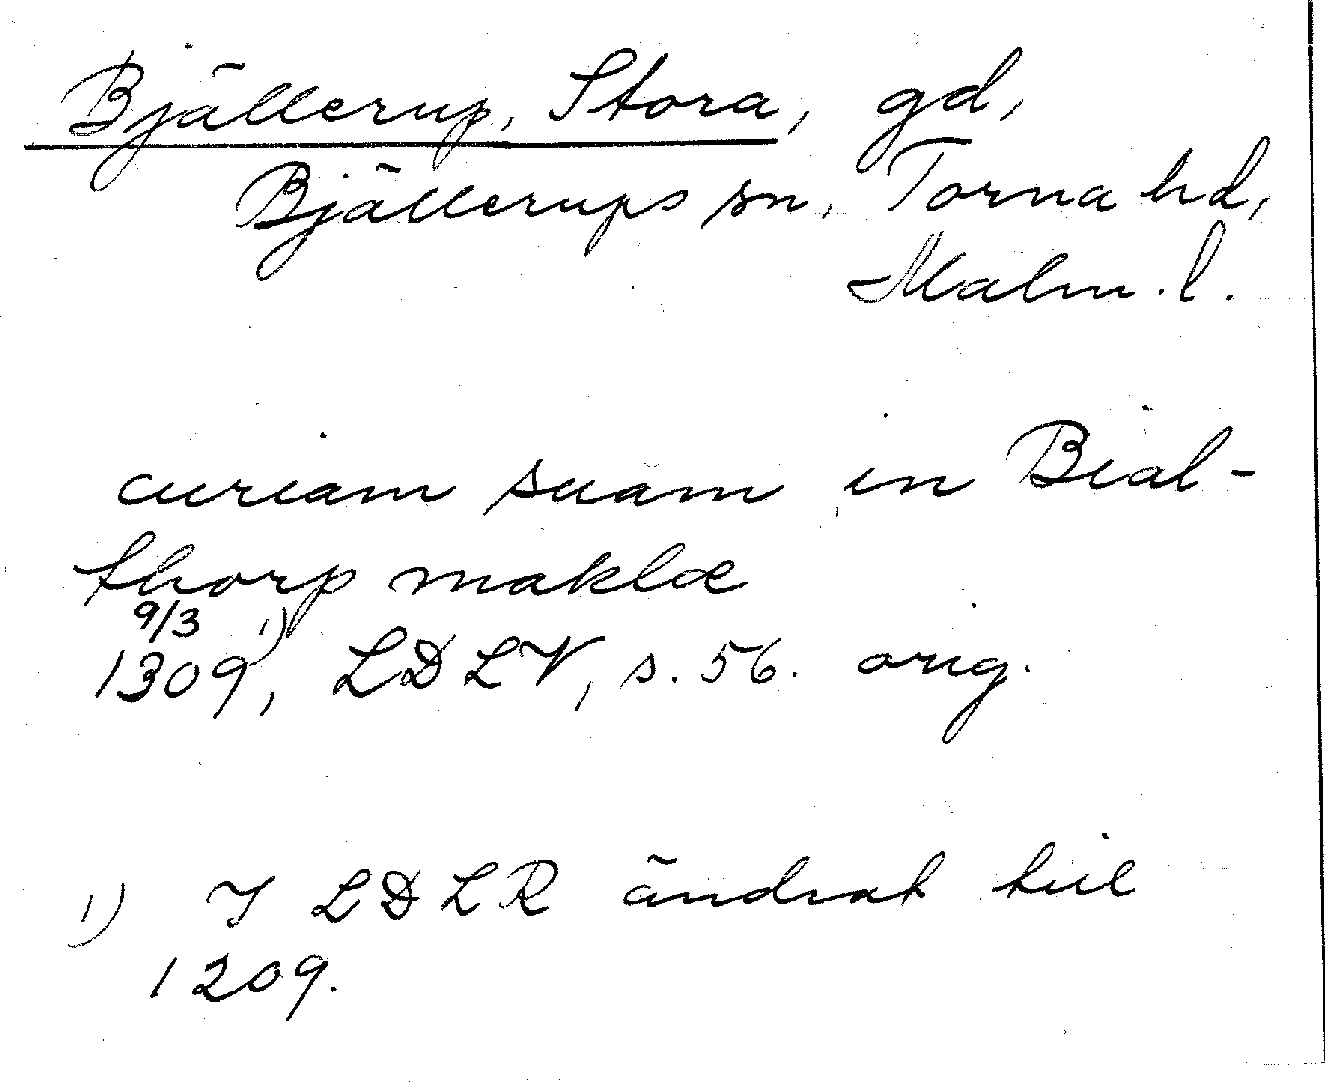 Bjällerup, Stora, gd,
Bjällerups sn, Torna hd,
Malm. l.
curiam suam in Bial-
thorp maklæ
9/3 1)
1309, LDLV, s. 56. orig.
1) I LDLR ändrat till
1209.